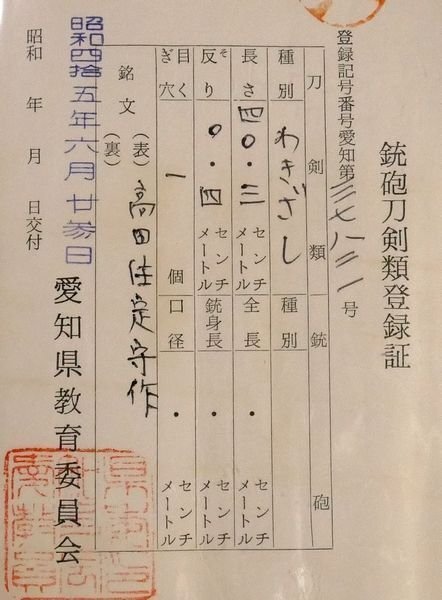 銃砲刀剣類登録証
登録記号番号愛知第三七八三一号
刀剣類
銃砲
種別 わきざし
種別
長さ 四〇・三 センチメートル
全長 ・ センチメートル
反り そ 〇・四 センチメートル
銃身長 ・ センチメートル
目くぎ穴 一 個
口径 ・ センチメートル
銘文 (表) 高田住定守作
(裏)
昭和四拾五年六月廿参日
昭和 年 月 日交付
愛知県教育委員会